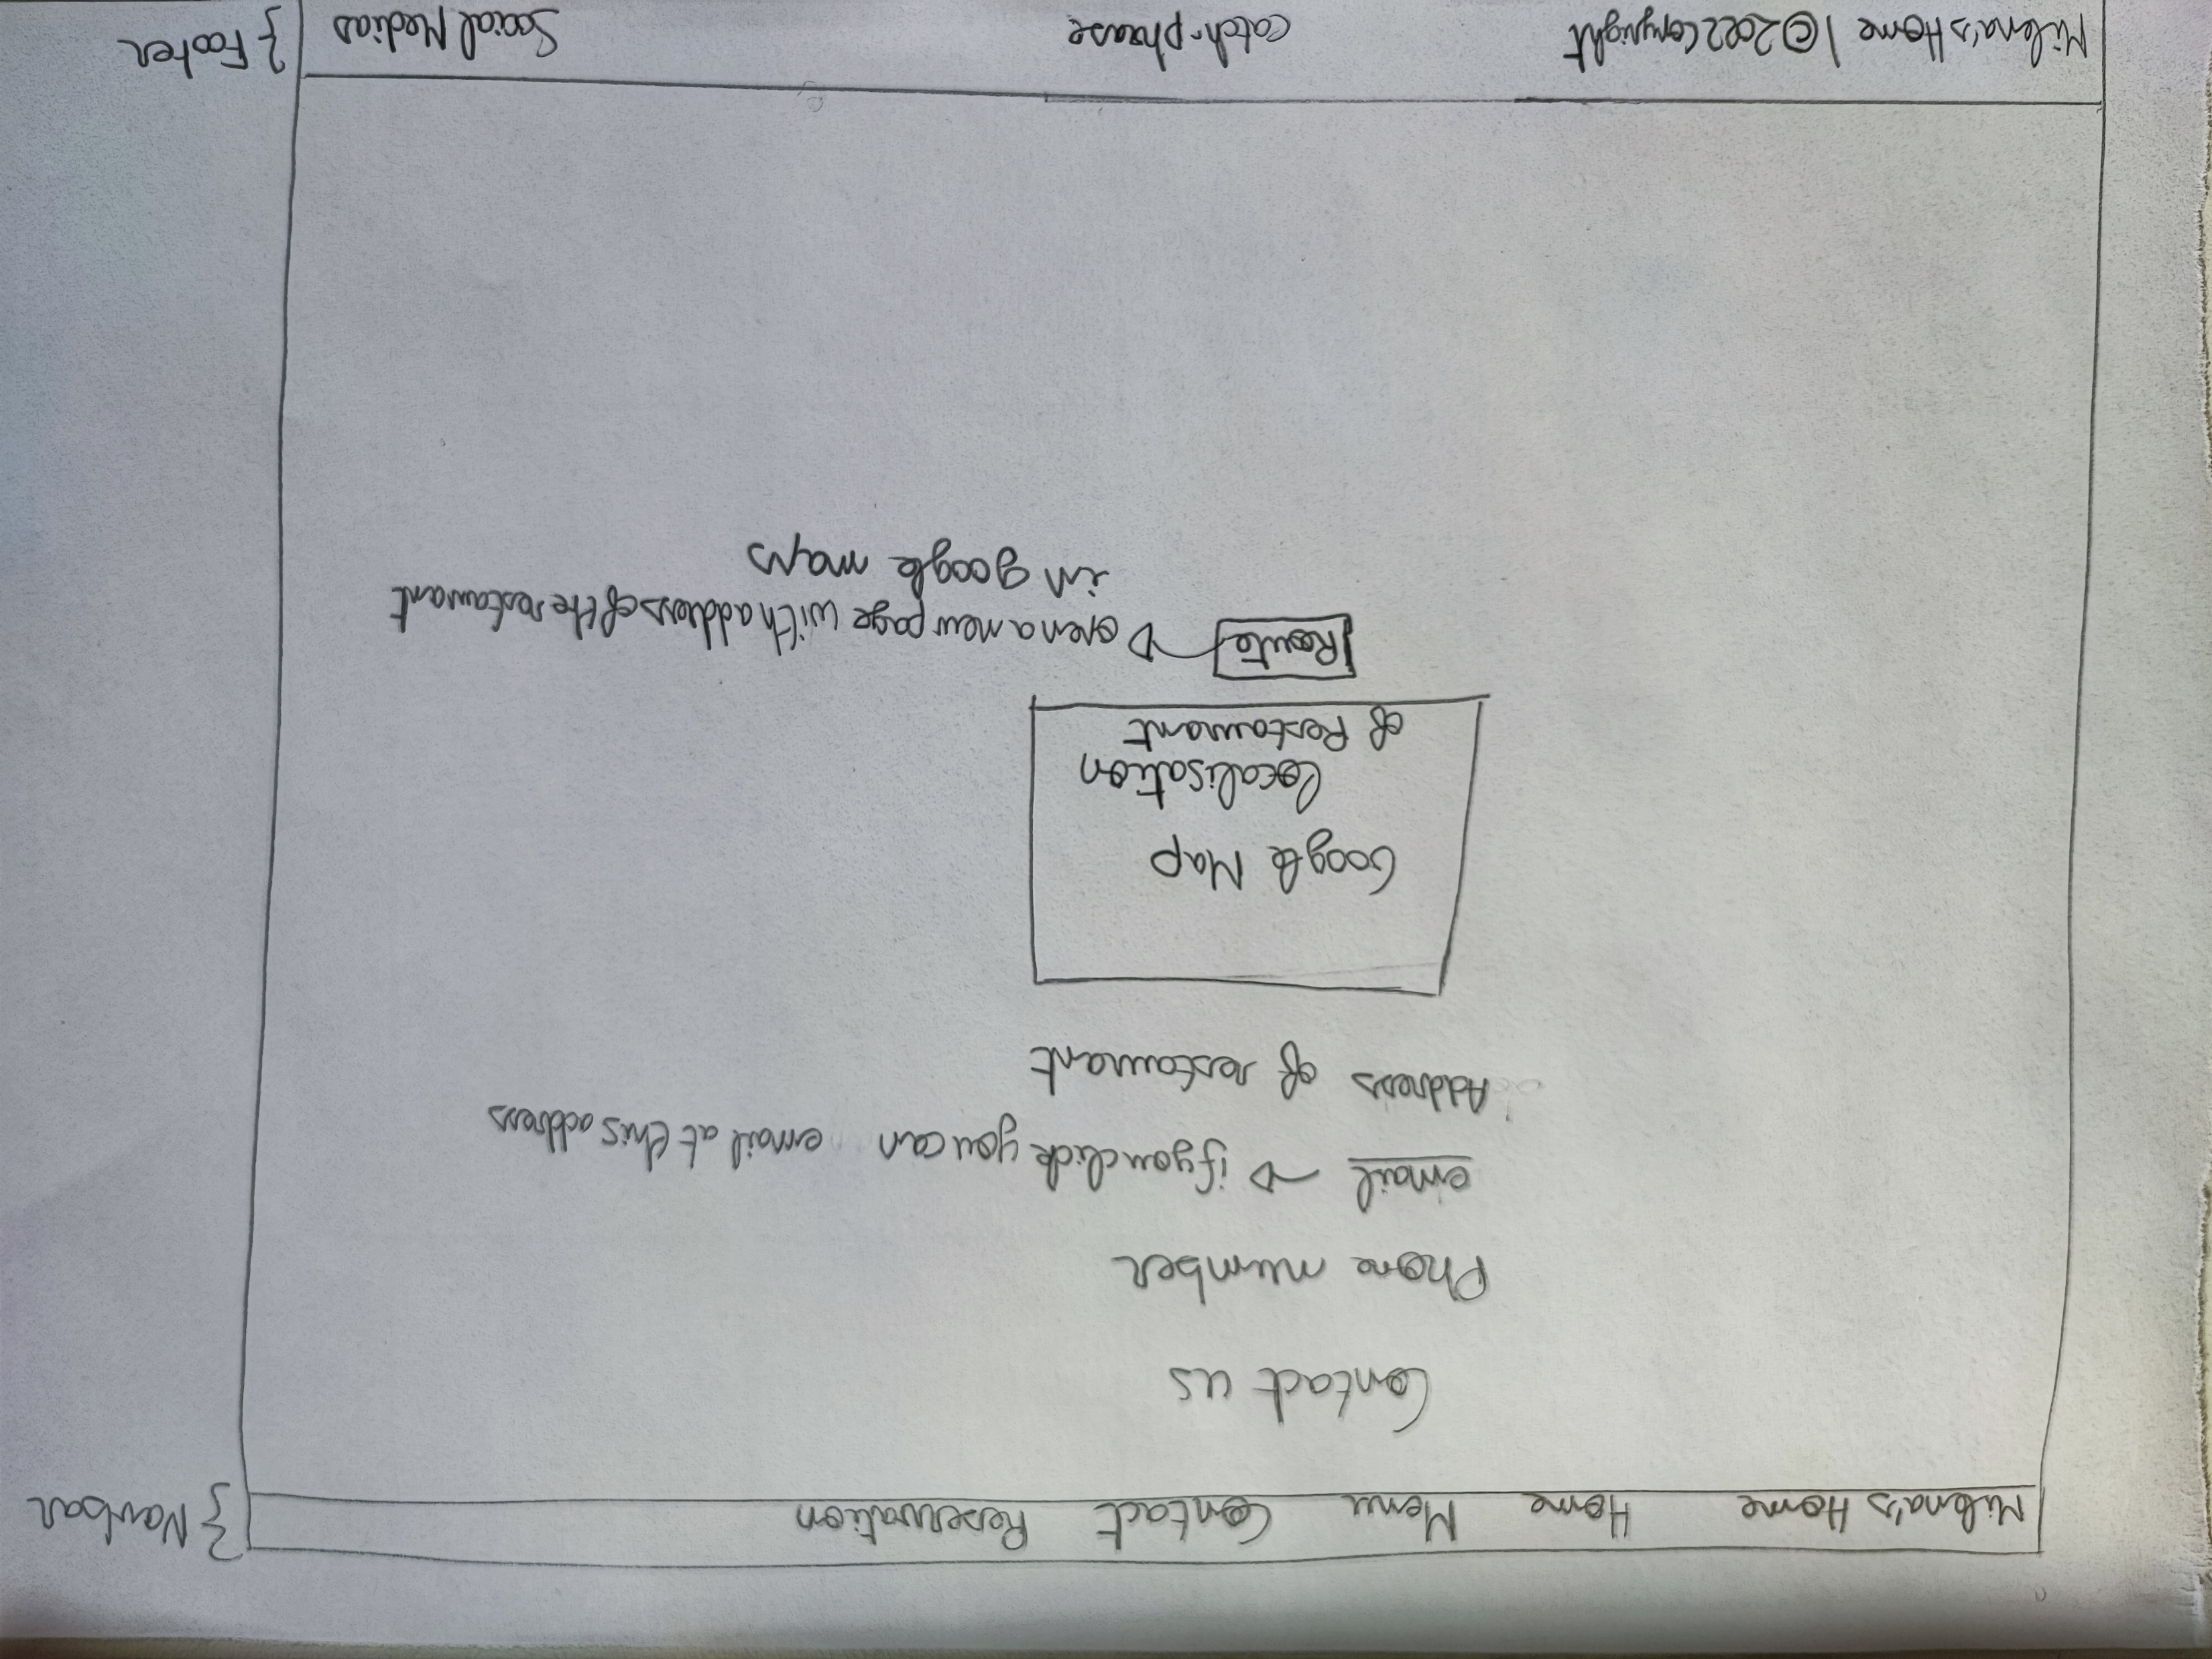 Milena's Home Home Menu Contact Reservation } Navbar
Contact us
Phone number
email → if you click you can email at this address
Address of restaurant
Google Map
localisation
of Restaurant
Route → open a new page with address of the restaurant
in google maps
Milena's Home | © 2022 Copyright catch-phrase Social Medias } Footer